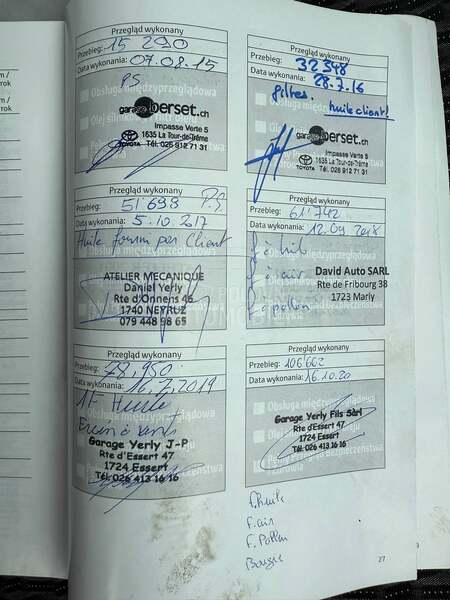 m /
rok
m /
rok
Przegląd wykonany
Przebieg: 15 290
Data wykonania: 07.08.15
PS
Obsługa międzyprzeglądowa
garage berset.ch
Impasse Verte 5
1635 La Tour-de-Trême
TOYOTA Tél. 026 912 71 31
Przegląd wykonany
Przebieg: 32 348
Data wykonania: 28.7.16
filtres. huile client!
garage berset.ch
Impasse Verte 5
1635 La Tour-de-Trême
TOYOTA Tél. 026 912 71 31
Przegląd wykonany
Przebieg: 51'698 P.S
Data wykonania: 5.10.2017
Huile fourni par Client
Obsługa międzyprzeglądowa
ATELIER MECANIQUE
Daniel Yerly
Rte d'Onnens 46
1740 NEYRUZ
079 448 98 65
Przegląd wykonany
Przebieg: 61'742
Data wykonania: 12.09.2018
f à huile
f à air
f à pollen
David Auto SARL
Rte de Fribourg 38
1723 Marly
Przegląd wykonany
Przebieg: 78,950
Data wykonania: 16.7.2019
Huile
Obsługa międzyprzeglądowa
Garage Yerly J-P
Rte d'Essert 47
1724 Essert
Tél. 026 413 16 16
Przegląd wykonany
Przebieg: 106'662
Data wykonania: 16.10.20
Obsługa międzyprzeglądowa
Garage Yerly Fils Sàrl
Rte d'Essert 47
1724 Essert
Tél. 026 413 16 16
f. huile
F. air
F. Pollen
Bougie
27